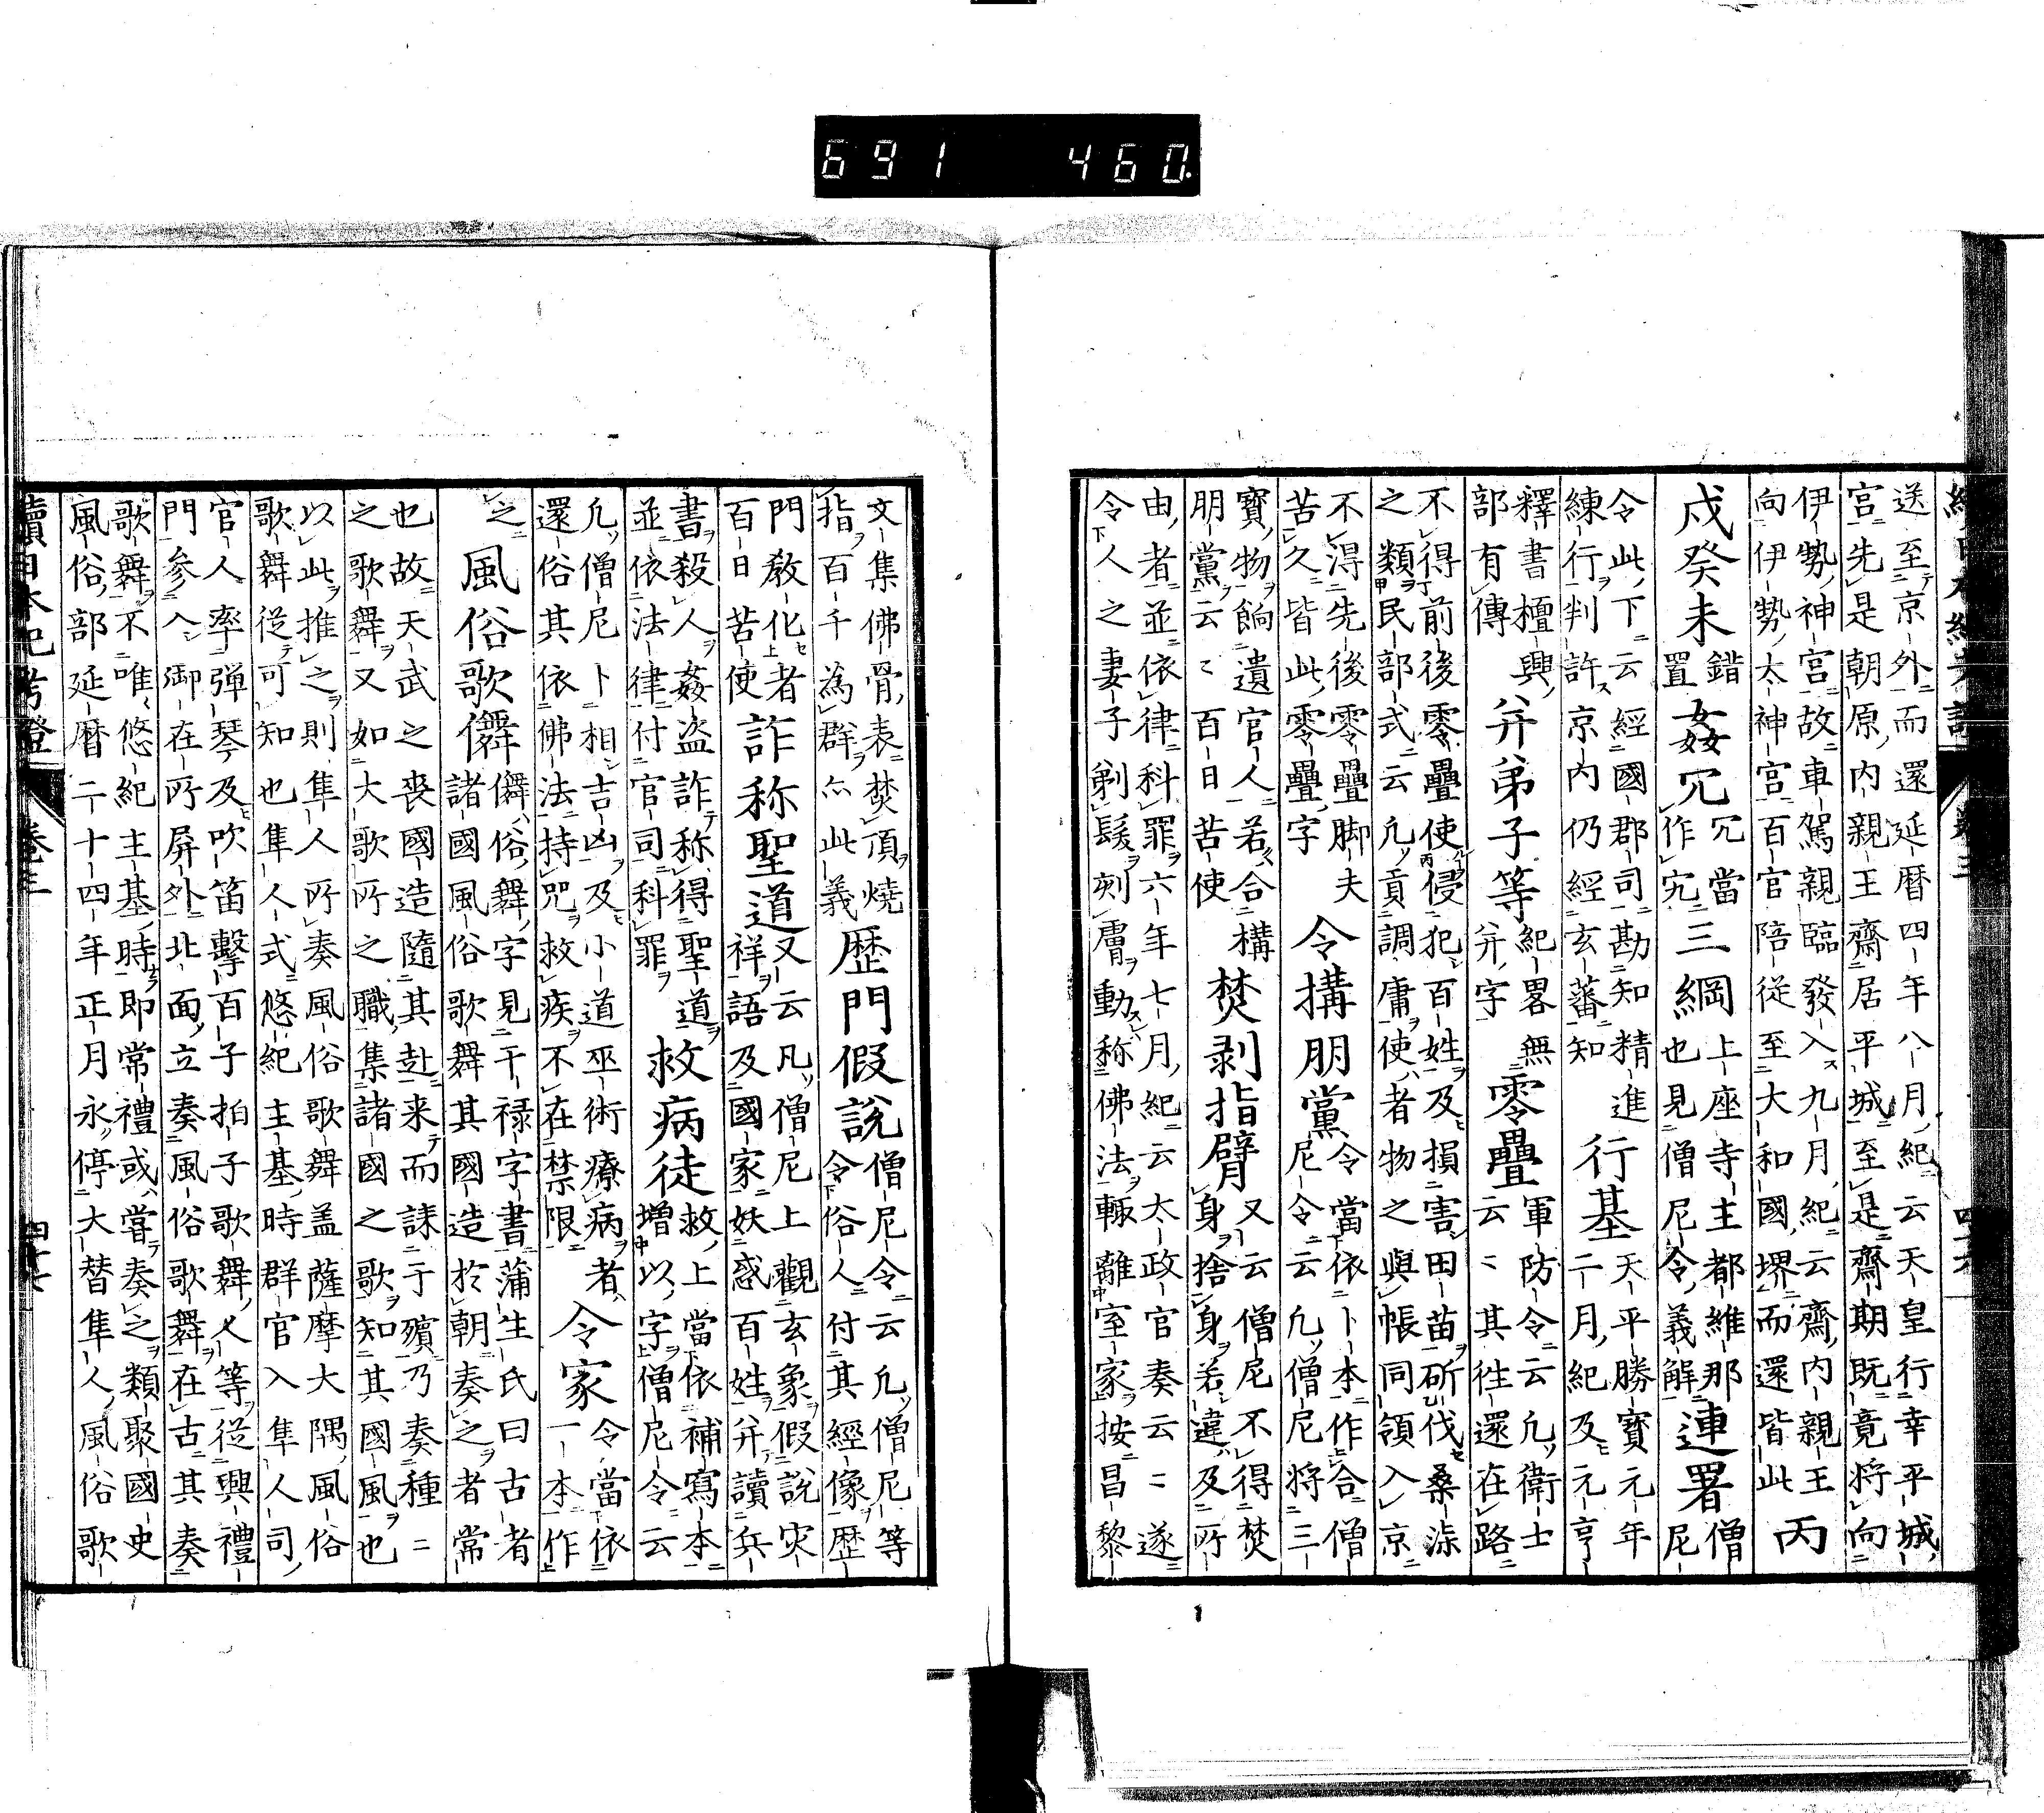 691 460
送至京外而還延曆四年八月紀云天皇行幸平城
宮先是朝原内親王齋居平城至是齋期既竟將向
伊勢神宮故車駕親臨發入九月紀云齋内親王
向伊勢太神宮百官陪從至大和國堺而還皆此 丙
戌癸未錯置 姦冗冗當作宄 三綱上座寺主都維那也見僧尼令義解 連署僧尼
令此下云經國郡司勘知精進
練行判許京内仍經玄蕃知 行基天平勝寶元年二月紀及元亨
釋書檀興
部有傳 并弟子等紀畧無并字 零疊軍防令云凡衛士云々其往還在路
不得前後零疊使侵犯百姓及損害田苗斫伐桑柒
之類民部式云凡貢調庸使者物之與帳同領入京
不得先後零疊脚夫
苦久皆此零疊字 令搆朋黨令當依卜本作合僧尼令云凡僧尼將三
寶物餉遺官人若合構
朋黨云々百日苦使 焚剥指臂又云僧尼不得焚身捨身若違及所
由者並依律科罪六年七月紀云太政官奏云々遂
令人之妻子剃髮刻膚動稱佛法輙離室家按昌黎
文集佛骨表焚頂燒
指百千為群亦此義 歷門假說僧尼令云凡僧尼等令俗人付其經像歷
門教化者
百日苦使 詐称聖道又云凡僧尼上觀玄象假說灾祥語及國家妖惑百姓并讀兵
書殺人姦盗詐称得聖道
並依法律付官司科罪 救病徒救上當依補寫本増以字僧尼令云
凡僧尼卜相吉凶及小道巫術療病者
還俗其依佛法持咒救疾不在禁限 令家令當依一本作
之 風俗歌儛儛俗舞字見干禄字書蒲生氏曰古者諸國風俗歌舞其國造於朝奏之者常
也故天武之喪國造隨其赴来而誄于殯乃奏種々
之歌舞又如大歌所之職集諸國之歌知其國風也
以此推之則隼人所奏風俗歌舞盖薩摩大隅風俗
歌舞從可知也隼人式悠紀主基時群官入隼人司
官人率弾琴及吹笛擊百子拍子歌舞人等從興禮
門参入御在所屏外北面立奏風俗歌舞在古其奏
歌舞不唯悠紀主基時即常禮或嘗奏之類聚國史
風俗部延曆二十四年正月永停大替隼人風俗歌
續日本紀考證 卷三